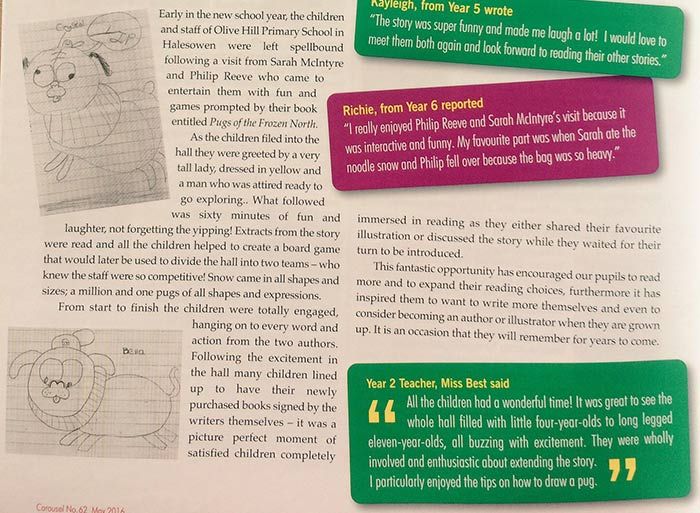 Early in the new school year, the children
and staff of Olive Hill Primary School in
Halesowen were left spellbound
following a visit from Sarah McIntyre
and Philip Reeve who came to
entertain them with fun and
games prompted by their book
entitled Pugs of the Frozen North.
As the children filed into the
hall they were greeted by a very
tall lady, dressed in yellow and
a man who was attired ready to
go exploring.. What followed
was sixty minutes of fun and
laughter, not forgetting the yipping! Extracts from the story
were read and all the children helped to create a board game
that would later be used to divide the hall into two teams – who
knew the staff were so competitive! Snow came in all shapes and
sizes; a million and one pugs of all shapes and expressions.
From start to finish the children were totally engaged,
hanging on to every word and
action from the two authors.
Following the excitement in
the hall many children lined
up to have their newly
purchased books signed by the
writers themselves – it was a
picture perfect moment of
satisfied children completely
Bella
Carousel No.62 May 2016
Kayleigh, from Year 5 wrote
"The story was super funny and made me laugh a lot! I would love to
meet them both again and look forward to reading their other stories."
Richie, from Year 6 reported
"I really enjoyed Philip Reeve and Sarah McIntyre's visit because it
was interactive and funny. My favourite part was when Sarah ate the
noodle snow and Philip fell over because the bag was so heavy."
immersed in reading as they either shared their favourite
illustration or discussed the story while they waited for their
turn to be introduced.
This fantastic opportunity has encouraged our pupils to read
more and to expand their reading choices, furthermore it has
inspired them to want to write more themselves and even to
consider becoming an author or illustrator when they are grown
up. It is an occasion that they will remember for years to come.
Year 2 Teacher, Miss Best said
" All the children had a wonderful time! It was great to see the
whole hall filled with little four-year-olds to long legged
eleven-year-olds, all buzzing with excitement. They were wholly
involved and enthusiastic about extending the story.
I particularly enjoyed the tips on how to draw a pug. "